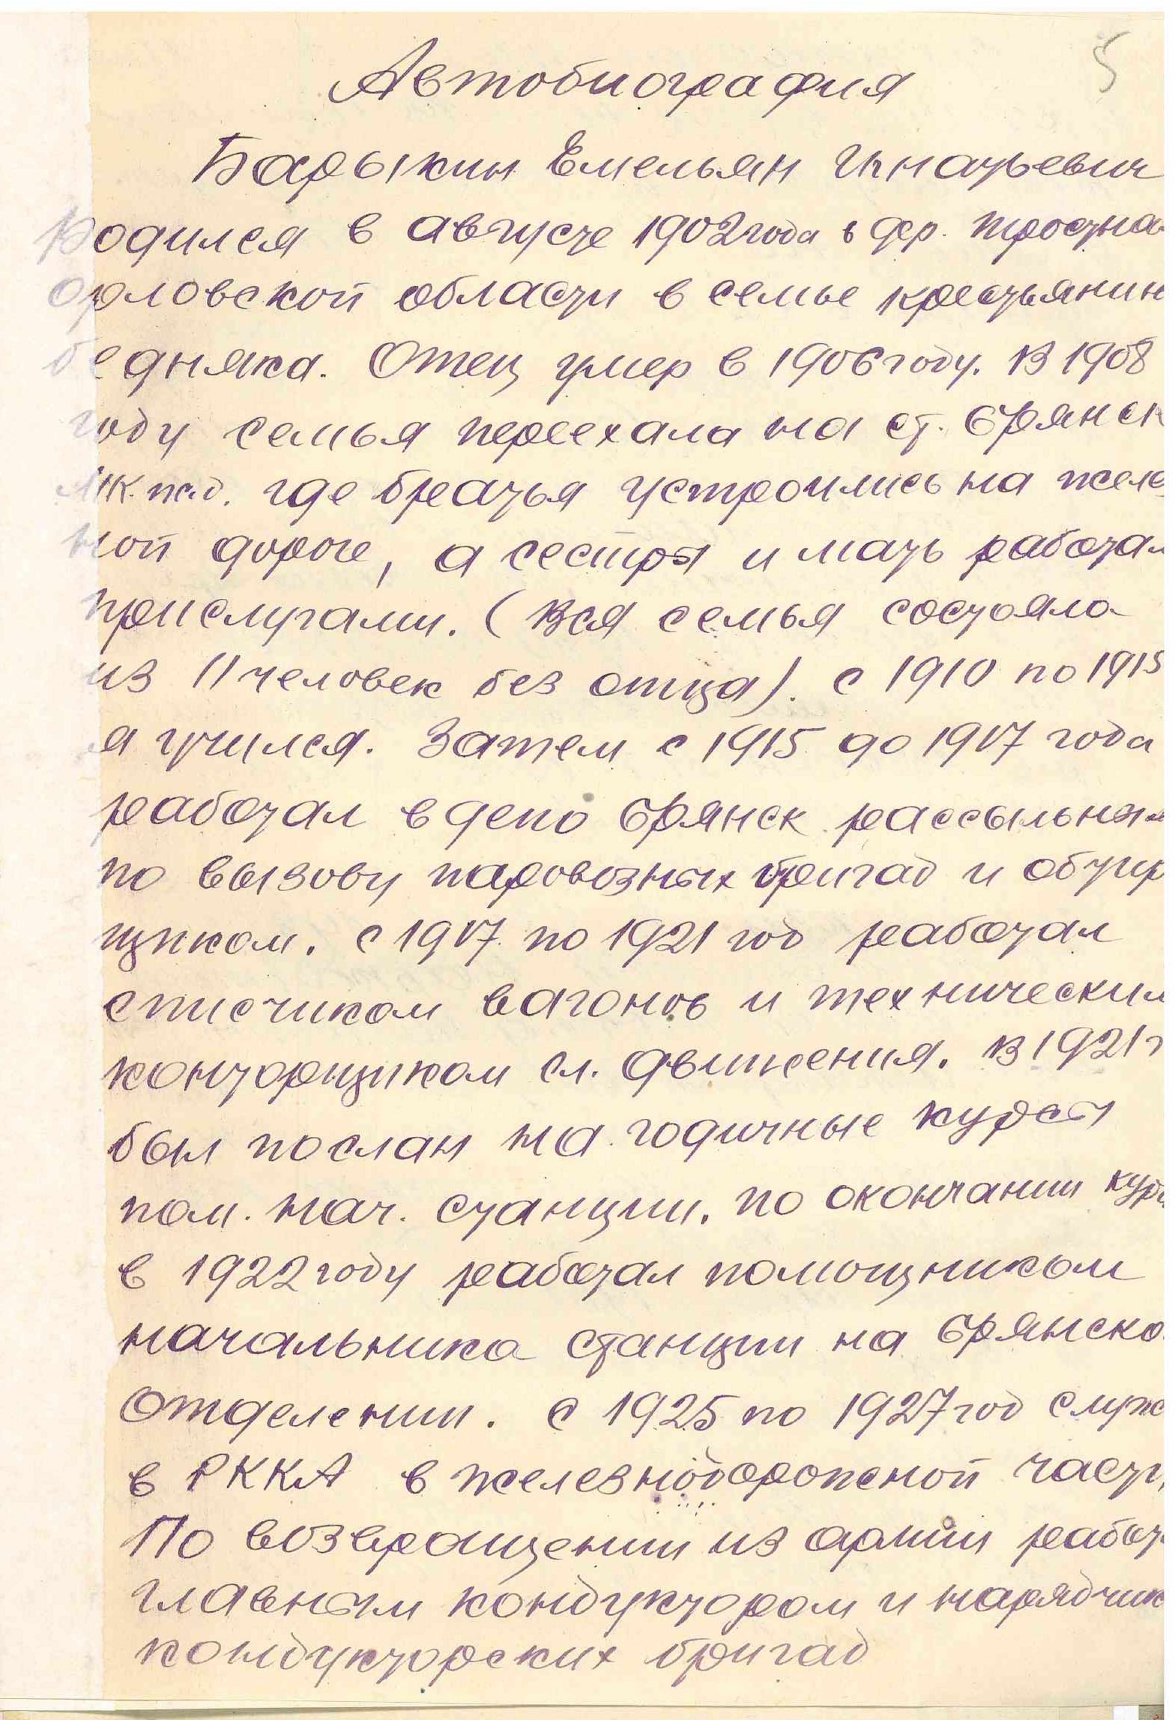 5
Автобиография
Барыкин Емельян Игнатьевич
Родился в августе 1902 года в дер. Тросна
Орловской области в семье крестьянин
бедняка. Отец умер в 1906 году. В 1908
году семья переехала на ст. Брянск
где братья устроились на желе
ной дороге, а сестры и мать работал
прислугами. (Вся семья состояла
из 11 человек без отца). с 1910 по 1915
я учился. Затем с 1915 до 1917 года
работал в депо Брянск рассыльным
по вызову паровозных бригад и обтир
щиком. с 1917 по 1921 год работал
списчиком вагонов и техническим
конторщиком сл. движения. В 1921 г
был послан на годичные курсы
пом. нач. станции. по окончании курс
в 1922 году работал помощником
начальника станции на Брянско
Отделении. с 1925 по 1927 год служ
в РККА в железнодорожной част
По возвращении из армии работ
главным кондуктором и нарядчик
кондукторских бригад